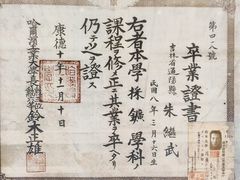 第四一八號
卒業證書
吉林省通陽縣
朱繼武
民國八年三月十六日生
右者本學採鑛學科ノ
課程ヲ修メ正ニ其業ヲ卒ヘタリ
仍テ之ヲ證ス
康德十年十一月十日
哈爾濱工業大學長 鈴木正雄